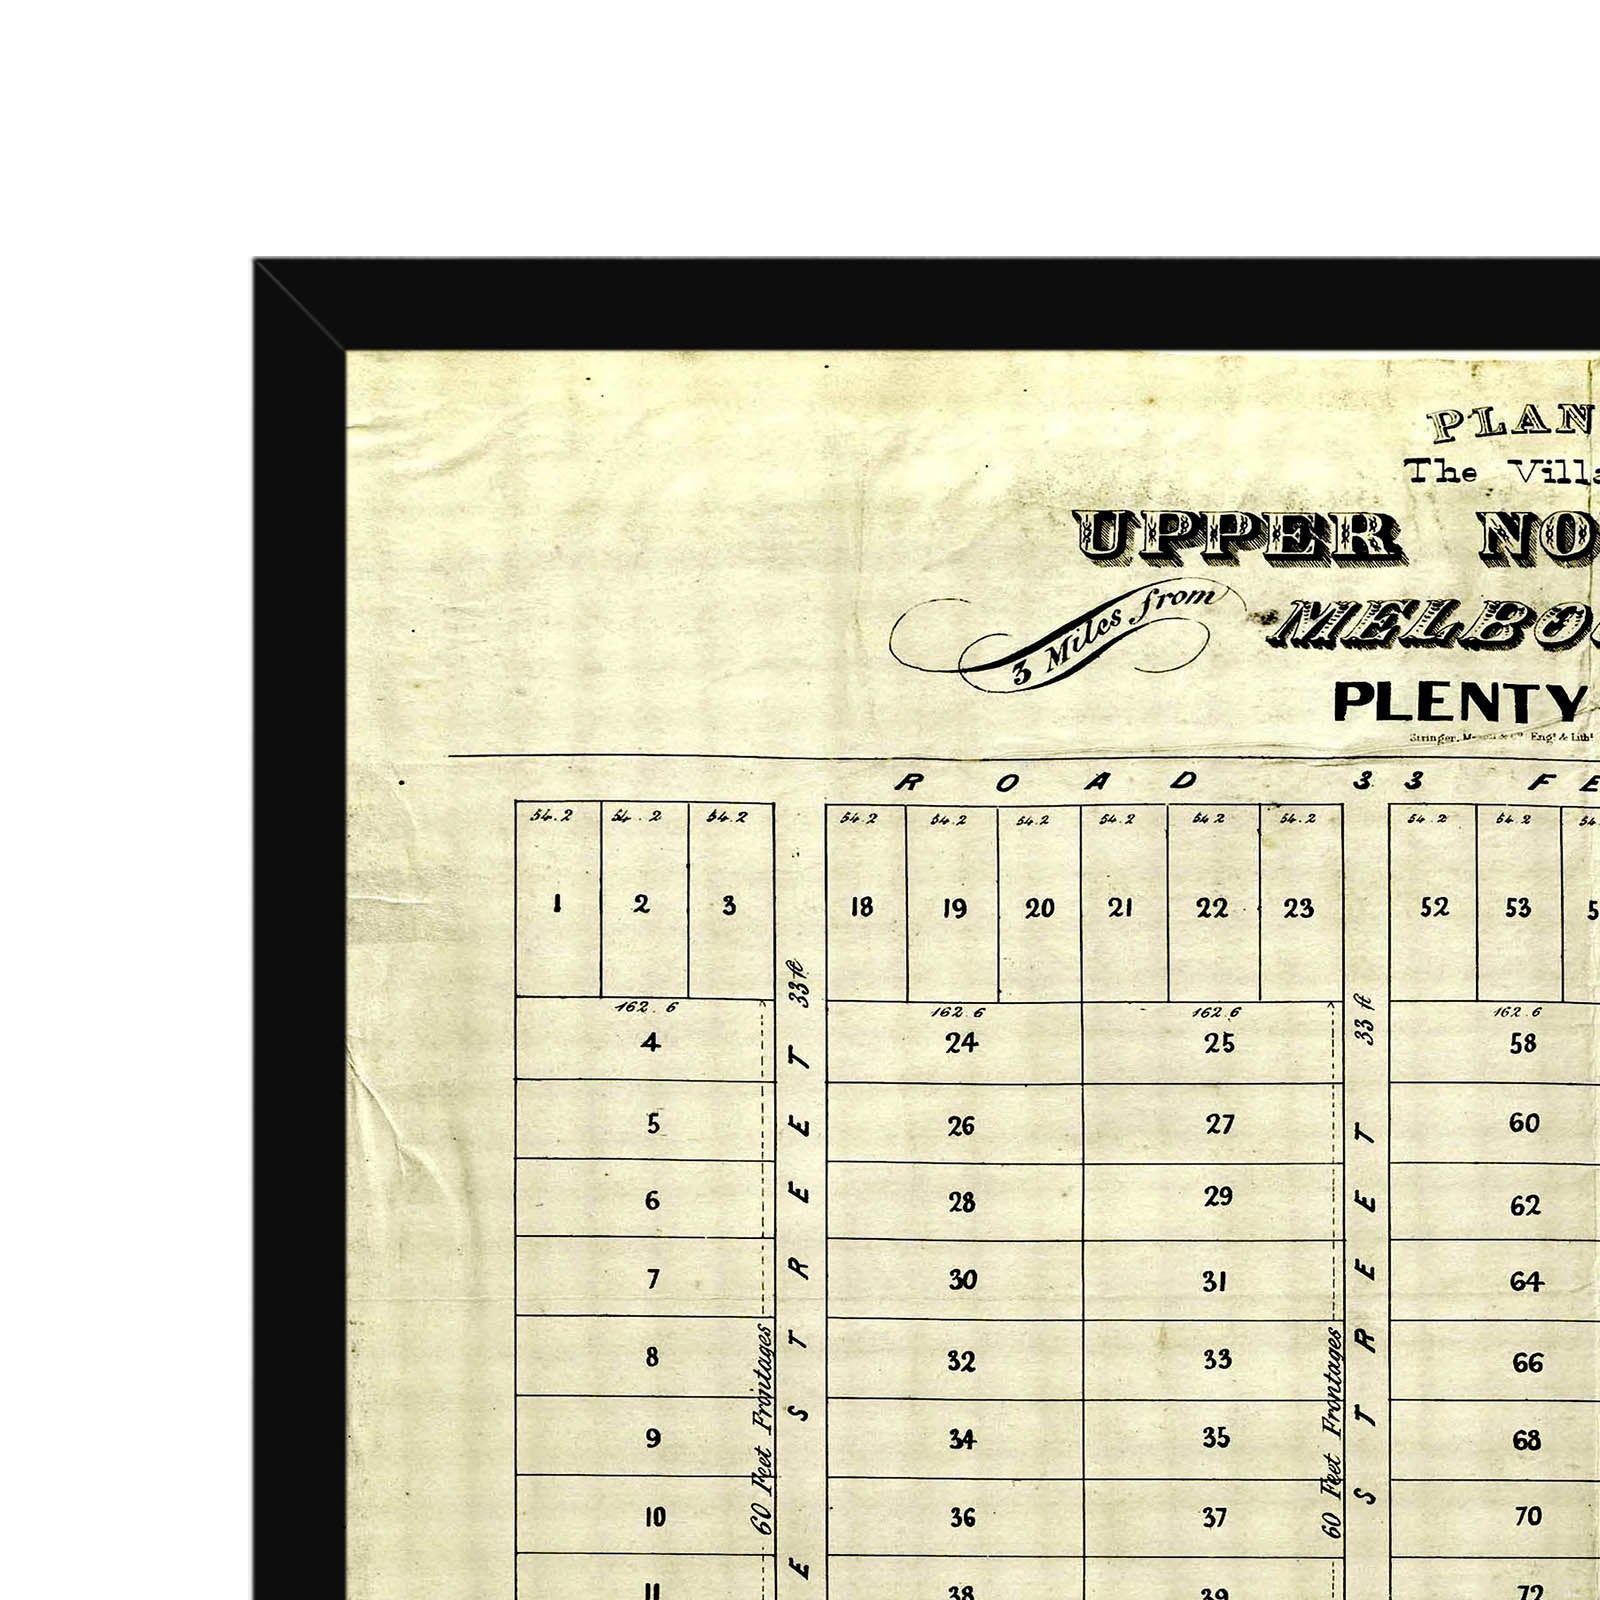 PLAN
The Villa
UPPER NO
3 Miles from MELBO
PLENTY
Stringer, Mason & Co. Engs & Lith
ROAD 33 FE
54.2 54.2 54.2 54.2 54.2 54.2 54.2 54.2 54.2 54.2 54.2 54.
1 2 3 18 19 20 21 22 23 52 53 5
33 ft
33 ft
162.6 162.6 162.6 162.6
4 24 25 58
5 26 27 60
6 28 29 62
7 30 31 64
8 32 33 66
9 34 35 68
10 36 37 70
11 38 39 72
60 Feet Frontages
E STREET
60 Feet Frontages
STREET